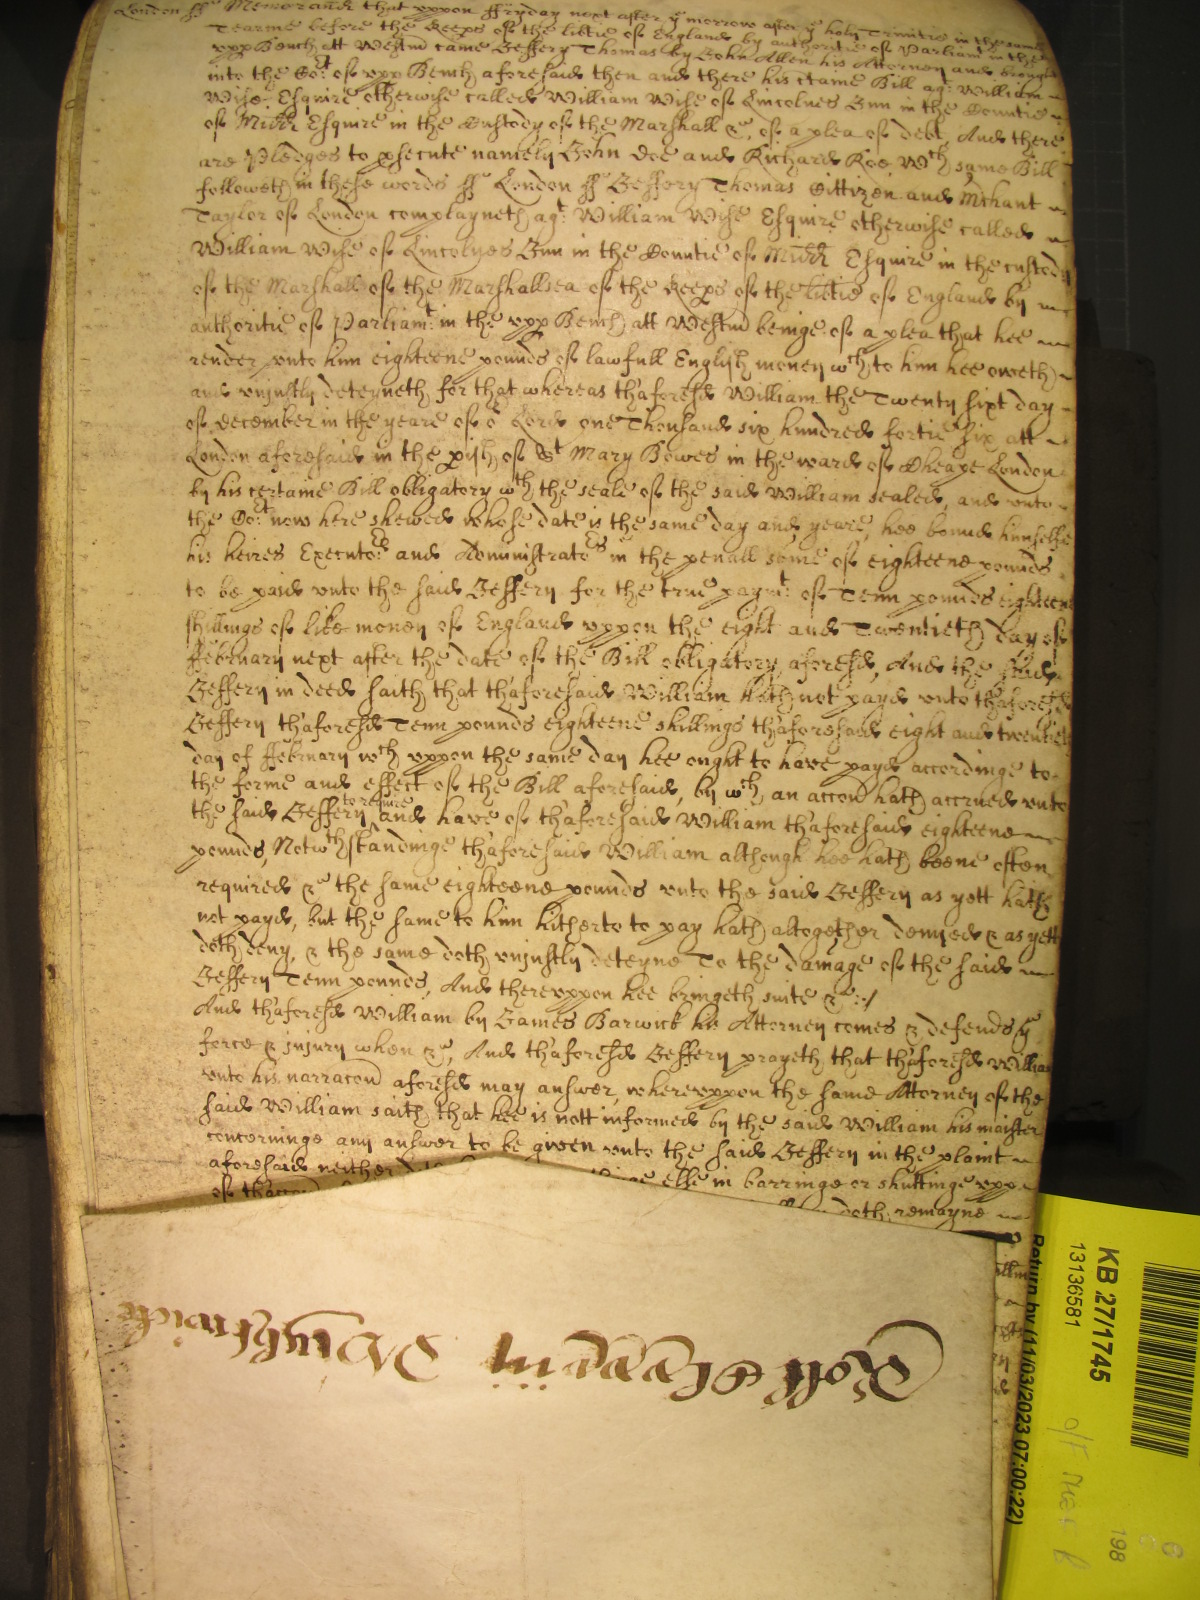 London ss Memorand that uppon ffryday next after ye morrow after ye holy Trinitie in the same
Tearme before the Keeps of the libtie of England by authoritie of Parliamt in the
upp Bench att Westm came Jeffery Thomas by John Allen his Attorney and brought
into the Cort of upp Bench aforesaid then and there his ctaine Bill agt William
Wise Esquire otherwise called William Wise of Lincolnes Inn in the Countie
of Midd Esquire in the Custody of the Marshall &c of a plea of debt, And there
are Pledges to psecute namely John Doe and Richard Roe Wch same Bill
followeth in these words ss London ss Jeffery Thomas Cittizen and Mchant
Taylor of London complayneth agt William Wise Esquire otherwise called
William Wise of Lincolnes Inn in the Countie of Midd Esquire in the custody
of the Marshall of the Marshallsea of the Keeps of the libtie of England by
authoritie of Parliamt in the upp Bench att Westm beinge of a plea that hee
render unto him eighteene pounds of lawfull English money wch to him hee oweth
and uniustly deteyneth for that whereas thaforesd William the Twenty sixt day
of december in the yeare of or Lord one Thousand six hundred fortie six att
London aforesaid in the pish of St Mary Bowes in the ward of Cheape London
by his certaine Bill obligatory wth the seale of the said William sealed, and unto
the Cort now here shewed whose date is the same day and yeare, hee bound himselfe
his heires Executors and Administrators in the penall some of eighteene pounds
to be paid unto the said Jeffery for the true paymt of Tenn pounds eighteene
shillings of like money of England uppon the eight and Twentieth day of
ffebruary next after the date of the Bill obligatory aforesd, And the said
Jeffery in deed saith that thaforesaid William hath not payd unto thaforesd
Jeffery thaforesd Tenn pounds eighteene shillings thaforesaid eight and twentieth
day of ffebruary wch uppon the same day hee ought to have payd accordinge to
the forme and effect of the Bill aforesaid, by wch an accon hath accrued unto
the said Jeffery to require and have of thaforesaid William thaforesaid eighteene
pounds, Notwthstandinge thaforesaid William although hee hath beene often
required &c the same eighteene pounds unto the said Jeffery as yett hath
not payd, but the same to him hitherto to pay hath altogether denyed & as yett
doth deny, & the same doth uniustly deteyne To the damage of the said
Jeffery Tenn pounds, And thereuppon hee bringeth suite &c
And thaforesd William by James Barwick his Attorney comes & defends ye
force & iniury when &c, And thaforesd Jeffery prayeth that thaforesd William
unto his narracon aforesd may answer, whereuppon the same Attorney of the
said William saith that hee is nott informed by the said William his maister
concerninge any answer to be given unto the said Jeffery in the plaint
aforesaid neither elle in barringe or shuttinge upp
of thaccon doth remayne
Roll
KB 27/1745
13136581
Return by (11/03/2023 07:00:22)
198